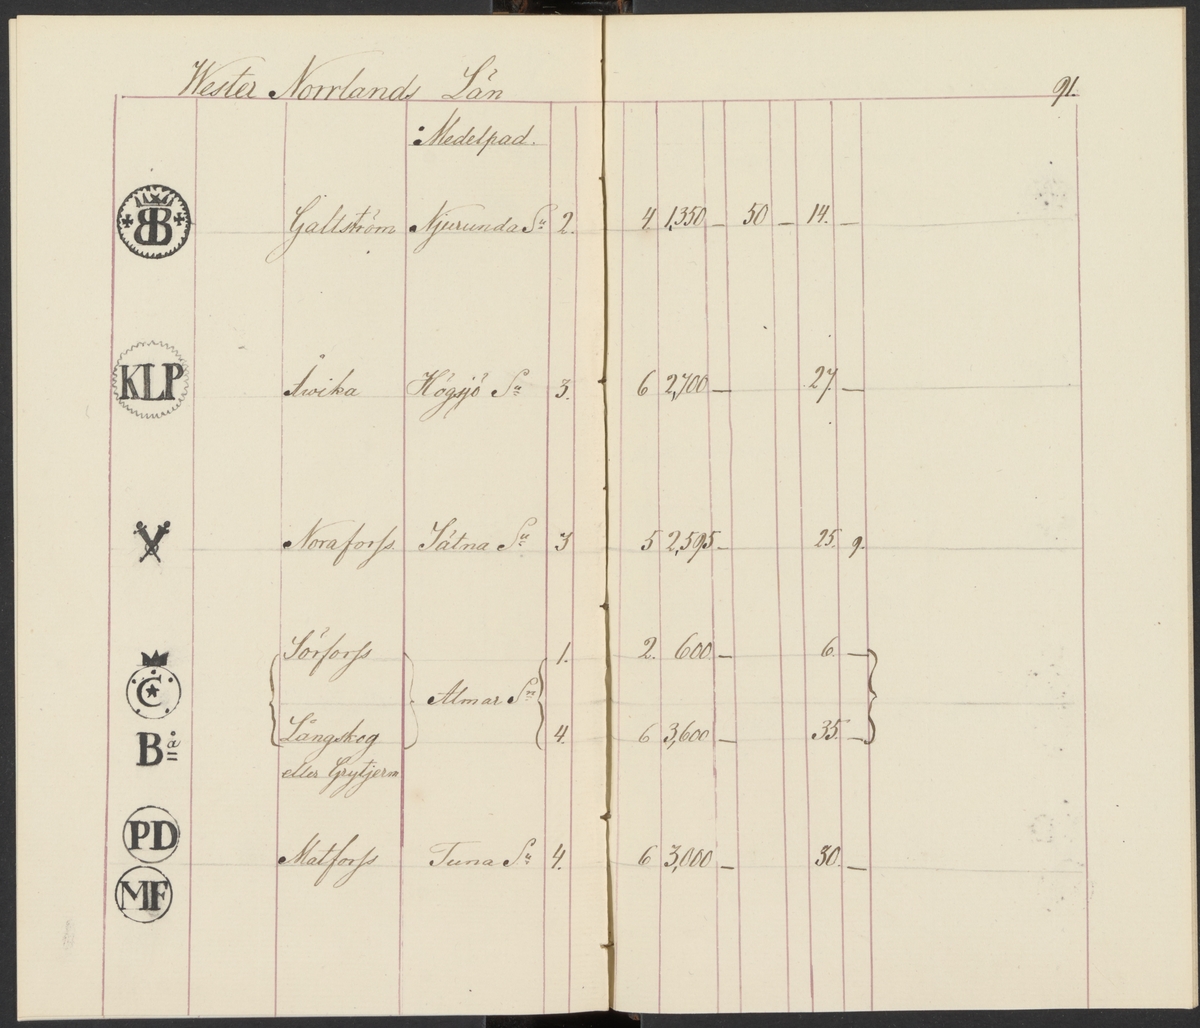 Wester Norrlands Län 91.
Medelpad.
BB Galtström Njurunda Sn 2. 4. 1,350 _ 50 _ 14. _
KLP Åwika Högsjö Sn 3. 6 2,700 _ 27. _
Noraforss Sätna Sn 3 5 2,595 _ 25. 9.
Sörforss 1. 2. 600 _ 6. _
C Almar Sn
Långskog 4. 6 3,600 _ 35. _
B:a
eller Grytjern
PD
Matforss Tuna Sn 4. 6 3,000 _ 30. _
MF